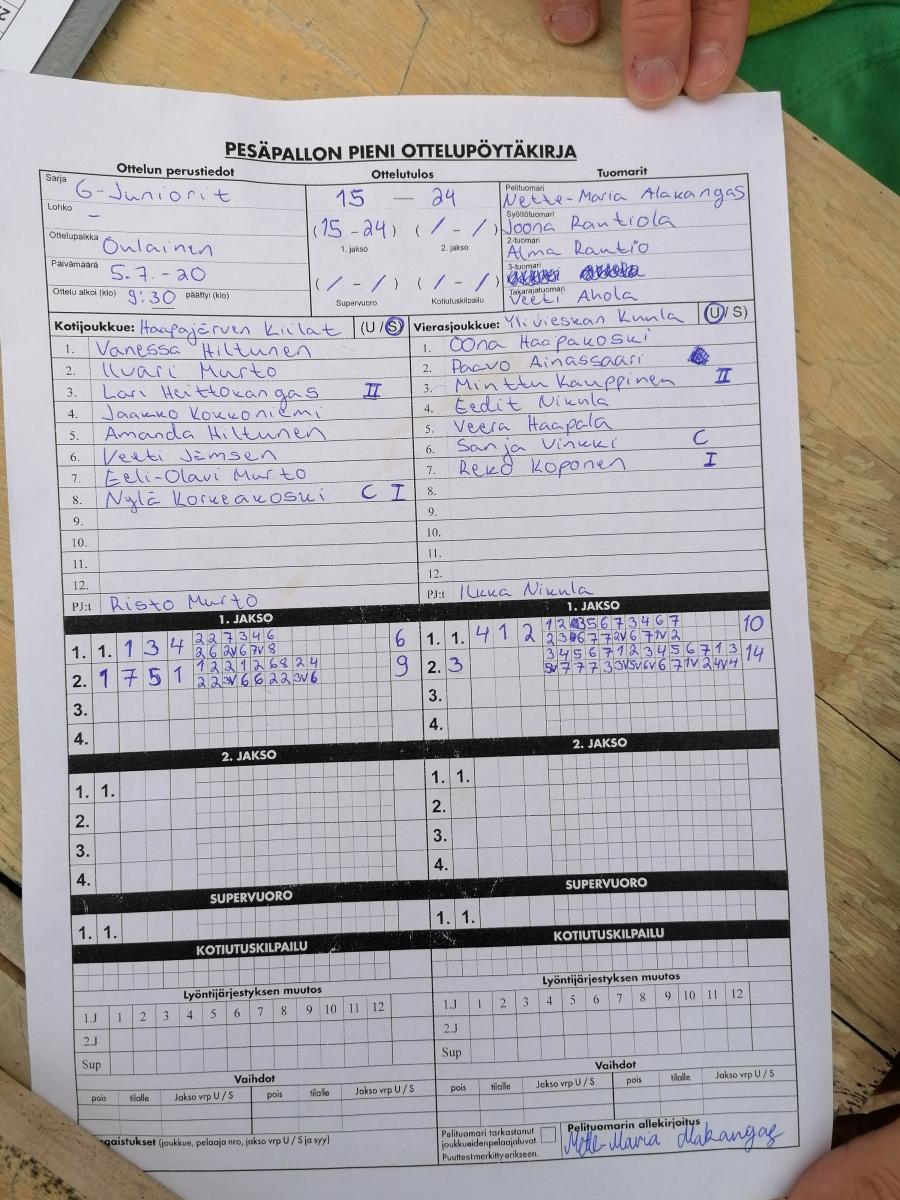 PESÄPALLON PIENI OTTELUPÖYTÄKIRJA
Ottelun perustiedot
Ottelutulos
Tuomarit
Sarja G-Juniorit
Lohko –
Ottelupaikka Oulainen
Päivämäärä 5.7.-20
Ottelu alkoi (klo) 9:30 päättyi (klo)
15 — 24
(15-24) (/ - /)
1. jakso 2. jakso
(/ - /) (/ - /)
Supervuoro Kotiutuskilpailu
Pelituomari Nette-Maria Alakangas
Syöttötuomari Joona Rautiola
2-tuomari Alma Rautio
3-tuomari
Takarajatuomari Veeti Ahola
Kotijoukkue: Haapajärven Kiilat (U / S)
1. Vanessa Hiltunen
2. Iivari Murto
3. Lari Heittokangas II
4. Jaakko Kokkoniemi
5. Amanda Hiltunen
6. Veeti Jämsen
7. Eeli-Olavi Murto
8. Nylä Korkeakoski C I
9.
10.
11.
12.
PJ:t Risto Murto
Vierasjoukkue: Ylivieskan Kuula (U / S)
1. Oona Haapakoski
2. Paavo Ainassaari
3. Minttu Kauppinen II
4. Eedit Nikula
5. Veera Haapala
6. Sanja Vinkki C
7. Reko Koponen I
8.
9.
10.
11.
12.
PJ:t Ilkka Nikula
1. JAKSO
1. 1. 1 3 4 2 2 7 3 4 6 6
2 6 2V 6 7V 8
2. 1 7 5 1 1 2 2 1 2 6 8 2 4 9
2 2 3V 6 6 2 2 3V 6
3.
4.
1. JAKSO
1. 1. 4 1 2 10
2. 3 3 4 5 6 7 1 2 3 4 5 6 7 1 3 14
3.
4.
2. JAKSO
1. 1.
2.
3.
4.
2. JAKSO
1. 1.
2.
3.
4.
SUPERVUORO
1. 1.
SUPERVUORO
1. 1.
KOTIUTUSKILPAILU
KOTIUTUSKILPAILU
Lyöntijärjestyksen muutos
1.J 1 2 3 4 5 6 7 8 9 10 11 12
2.J
Sup
Lyöntijärjestyksen muutos
1.J 1 2 3 4 5 6 7 8 9 10 11 12
2.J
Sup
Vaihdot
pois tilalle Jakso vrp U / S pois tilalle Jakso vrp U / S
Vaihdot
pois tilalle Jakso vrp U / S pois tilalle Jakso vrp U / S
gaistukset (joukkue, pelaaja nro, jakso vrp U / S ja syy)
Pelituomari tarkastanut
joukkueidenpelaajaluvat.
Puutteetmerkittyerikseen.
Pelituomarin allekirjoitus
Mette-Maria Alakangas